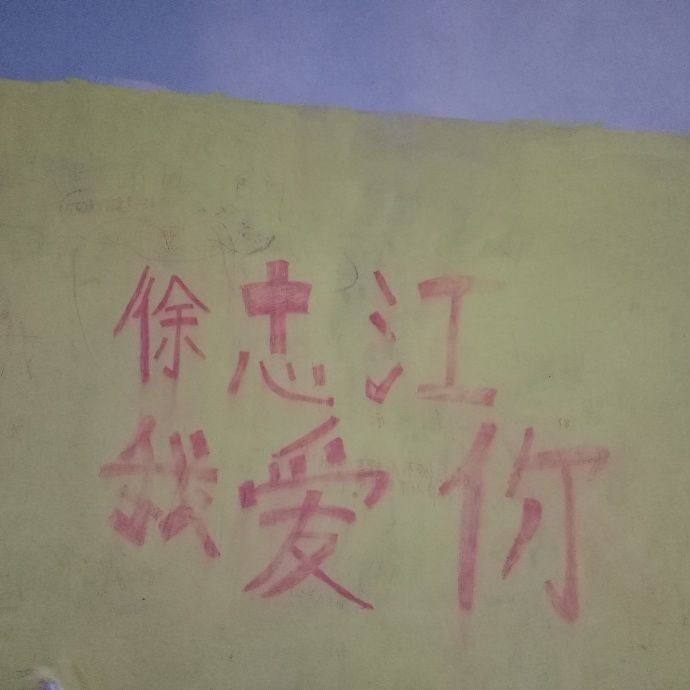 徐忠江
我爱你